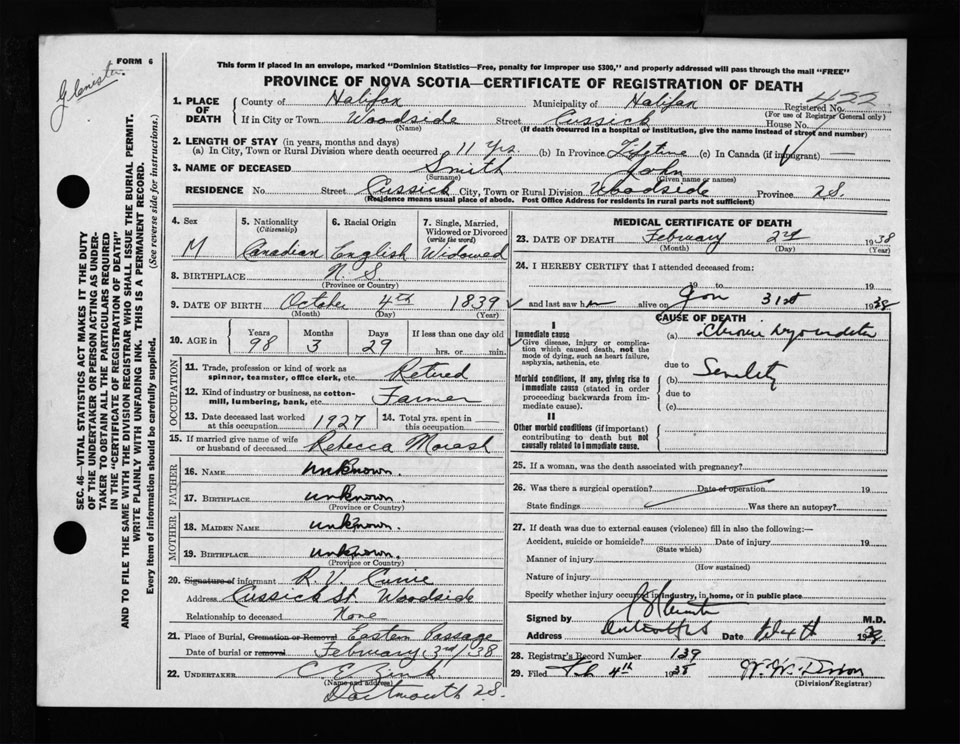 FORM 6
This form if placed in an envelope, marked "Dominion Statistics—Free, penalty for improper use $300," and properly addressed will pass through the mail "FREE"
PROVINCE OF NOVA SCOTIA—CERTIFICATE OF REGISTRATION OF DEATH
1. PLACE OF DEATH
County of Halifax Municipality of Halifax Registered No. 422
(For use of Registrar General only)
If in City or Town Woodside Street Cussick House No.
(Name) (If death occurred in a hospital or institution, give the name instead of street and number)
2. LENGTH OF STAY (in years, months and days)
(a) In City, Town or Rural Division where death occurred 11 Yrs. (b) In Province Lifetime (c) In Canada (if immigrant) —
3. NAME OF DECEASED Smith John
(Surname) (Given name or names)
RESIDENCE No. Street Cussick City, Town or Rural Division Woodside Province N.S.
(Residence means usual place of abode. Post Office Address for residents in rural parts not sufficient)
4. Sex M
5. Nationality (Citizenship) Canadian
6. Racial Origin English
7. Single, Married, Widowed or Divorced (write the word) Widowed
8. BIRTHPLACE N.S
(Province or Country)
9. DATE OF BIRTH October 4th 1839
(Month) (Day) (Year)
10. AGE in Years 98 Months 3 Days 29 If less than one day old hrs. or min.
OCCUPATION
11. Trade, profession or kind of work as spinner, teamster, office clerk, etc. Retired
12. Kind of industry or business, as cotton-mill, lumbering, bank, etc. Farmer
13. Date deceased last worked at this occupation 1927
14. Total yrs. spent in this occupation
15. If married give name of wife or husband of deceased Rebecca Morash
FATHER
16. NAME unknown.
17. BIRTHPLACE unknown.
(Province or Country)
MOTHER
18. MAIDEN NAME unknown.
19. BIRTHPLACE unknown.
(Province or Country)
20. Signature of informant R. V.
Address Cussick St. Woodside
Relationship to deceased None
21. Place of Burial, Cremation or Removal Eastern Passage
Date of burial or removal February 3rd/38
22. UNDERTAKER C E Zink
(Name and address)
Dartmouth N.S.
MEDICAL CERTIFICATE OF DEATH
23. DATE OF DEATH February 2nd 1938
(Month) (Day) (Year)
24. I HEREBY CERTIFY that I attended deceased from:
19 to 19
and last saw him alive on Jan 31st 1938
CAUSE OF DEATH
I
Immediate cause
Give disease, injury or complication which caused death, not the mode of dying, such as heart failure, asphyxia, asthenia, etc.
(a) Chronic Myocarditis
due to
Morbid conditions, if any, giving rise to immediate cause (stated in order proceeding backwards from immediate cause).
(b) Senility
due to
(c)
II
Other morbid conditions (if important) contributing to death but not causally related to immediate cause.
25. If a woman, was the death associated with pregnancy?
26. Was there a surgical operation? Date of operation 19
State findings Was there an autopsy?
27. If death was due to external causes (violence) fill in also the following:—
Accident, suicide or homicide? Date of injury 19
(State which)
Manner of injury
(How sustained)
Nature of injury
Specify whether injury occurred in industry, in home, or in public place
Signed by M.D.
Address Date 19
28. Registrar's Record Number 139
29. Filed Feb 4th 1938
(Division Registrar)
SEC. 46—VITAL STATISTICS ACT MAKES IT THE DUTY
OF THE UNDERTAKER OR PERSON ACTING AS UNDERTAKER
TO OBTAIN ALL THE PARTICULARS REQUIRED
IN THE "CERTIFICATE OF REGISTRATION OF DEATH"
AND TO FILE THE SAME WITH THE DIVISION REGISTRAR WHO SHALL ISSUE THE BURIAL PERMIT.
WRITE PLAINLY WITH UNFADING INK. THIS IS A PERMANENT RECORD.
Every item of information should be carefully supplied. (See reverse side for instructions.)